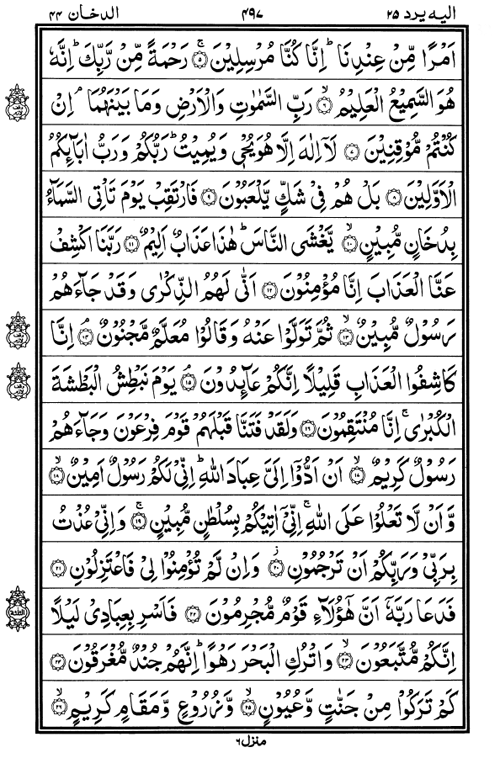 الیہ یرد ۲۵ ۴۹۷ الدخان ۴۴
اَمْرًا مِّنْ عِنْدِنَا ؕ اِنَّا كُنَّا مُرْسِلِیْنَ ۚ﴿۵﴾ رَحْمَةً مِّنْ رَّبِّكَ ؕ اِنَّهٗ
هُوَ السَّمِیْعُ الْعَلِیْمُ ۙ﴿۶﴾ رَبِّ السَّمٰوٰتِ وَالْاَرْضِ وَمَا بَیْنَهُمَا ۘ اِنْ
كُنْتُمْ مُّوْقِنِیْنَ ﴿۷﴾ لَاۤ اِلٰهَ اِلَّا هُوَ یُحْیٖ وَیُمِیْتُ ؕ رَبُّكُمْ وَرَبُّ اٰبَآئِكُمُ
الْاَوَّلِیْنَ ﴿۸﴾ بَلْ هُمْ فِیْ شَكٍّ یَّلْعَبُوْنَ ﴿۹﴾ فَارْتَقِبْ یَوْمَ تَاْتِی السَّمَآءُ
بِدُخَانٍ مُّبِیْنٍ ۙ﴿۱۰﴾ یَّغْشَی النَّاسَ ؕ هٰذَا عَذَابٌ اَلِیْمٌ ﴿۱۱﴾ رَبَّنَا اكْشِفْ
عَنَّا الْعَذَابَ اِنَّا مُؤْمِنُوْنَ ﴿۱۲﴾ اَنّٰی لَهُمُ الذِّكْرٰی وَقَدْ جَآءَهُمْ
رَسُوْلٌ مُّبِیْنٌ ۙ﴿۱۳﴾ ثُمَّ تَوَلَّوْا عَنْهُ وَقَالُوْا مُعَلَّمٌ مَّجْنُوْنٌ ۘ﴿۱۴﴾ اِنَّا
كَاشِفُوا الْعَذَابِ قَلِیْلًا اِنَّكُمْ عَآئِدُوْنَ ۘ﴿۱۵﴾ یَوْمَ نَبْطِشُ الْبَطْشَةَ
الْكُبْرٰی ۚ اِنَّا مُنْتَقِمُوْنَ ﴿۱۶﴾ وَلَقَدْ فَتَنَّا قَبْلَهُمْ قَوْمَ فِرْعَوْنَ وَجَآءَهُمْ
رَسُوْلٌ كَرِیْمٌ ۙ﴿۱۷﴾ اَنْ اَدُّوْۤا اِلَیَّ عِبَادَ اللّٰهِ ؕ اِنِّیْ لَكُمْ رَسُوْلٌ اَمِیْنٌ ۙ﴿۱۸﴾
وَّاَنْ لَّا تَعْلُوْا عَلَی اللّٰهِ ۚ اِنِّیْۤ اٰتِیْكُمْ بِسُلْطٰنٍ مُّبِیْنٍ ۚ﴿۱۹﴾ وَاِنِّیْ عُذْتُ
بِرَبِّیْ وَرَبِّكُمْ اَنْ تَرْجُمُوْنِ ۫﴿۲۰﴾ وَاِنْ لَّمْ تُؤْمِنُوْا لِیْ فَاعْتَزِلُوْنِ ﴿۲۱﴾
فَدَعَا رَبَّهٗۤ اَنَّ هٰۤؤُلَآءِ قَوْمٌ مُّجْرِمُوْنَ ﴿۲۲﴾ فَاَسْرِ بِعِبَادِیْ لَیْلًا
اِنَّكُمْ مُّتَّبَعُوْنَ ۙ﴿۲۳﴾ وَاتْرُكِ الْبَحْرَ رَهْوًا ؕ اِنَّهُمْ جُنْدٌ مُّغْرَقُوْنَ ﴿۲۴﴾
كَمْ تَرَكُوْا مِنْ جَنّٰتٍ وَّعُیُوْنٍ ۙ﴿۲۵﴾ وَّزُرُوْعٍ وَّمَقَامٍ كَرِیْمٍ ۙ﴿۲۶﴾
منزل ۶